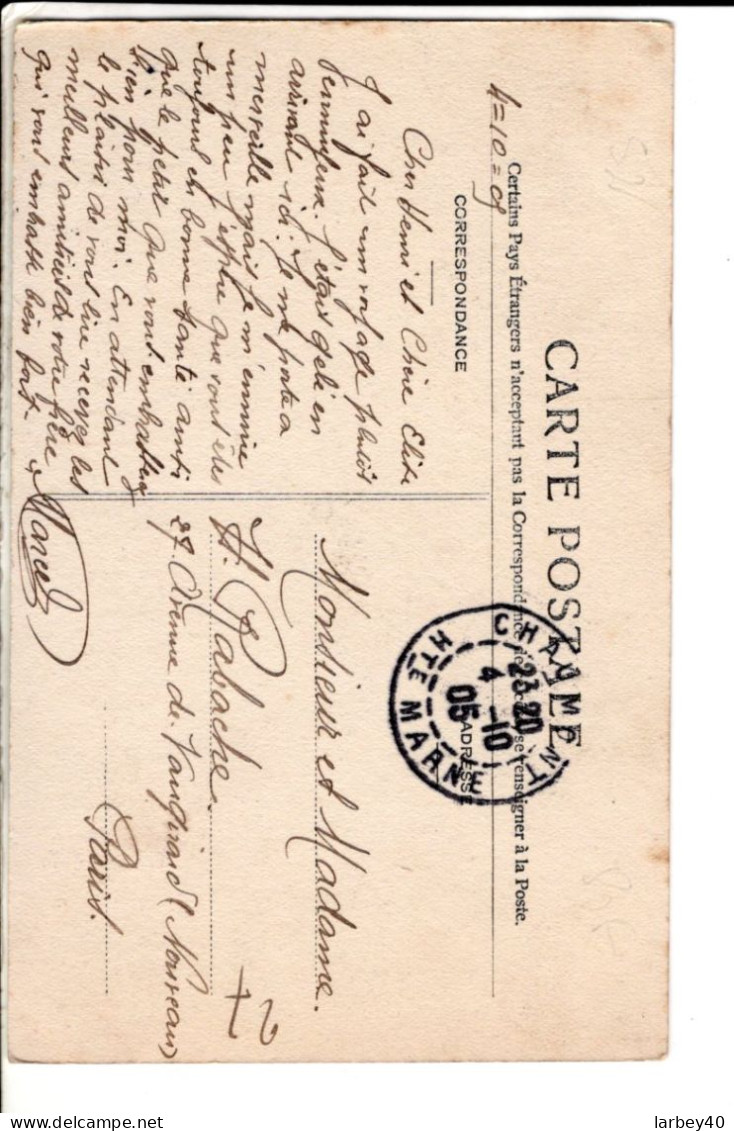 CARTE POSTALE
Certains Pays Étrangers n'acceptant pas la Correspondance se renseigner à la Poste.
CORRESPONDANCE
ADRESSE
4=10=05
CHAUMONT
HTE MARNE
23 20
4 -10
05
Cher Henri et Chère Elise
J'ai fait un voyage plutôt
J'étais gelé en
arrivant ici. Je me porte a
merveille mais je m'ennuie
un peu j'espère que vous êtes
toujours en bonne santé ainsi
que le petit que vous embrasserez
bien pour moi. En attendant
le plaisir de vous lire recevez les
meilleurs amitiés de votre frère
qui vous embrasse bien fort.
Marcel
Monsieur et Madame
H. Rabache.
27 Avenue de Vaugirard (Nouveau)
Paris.
larbey40